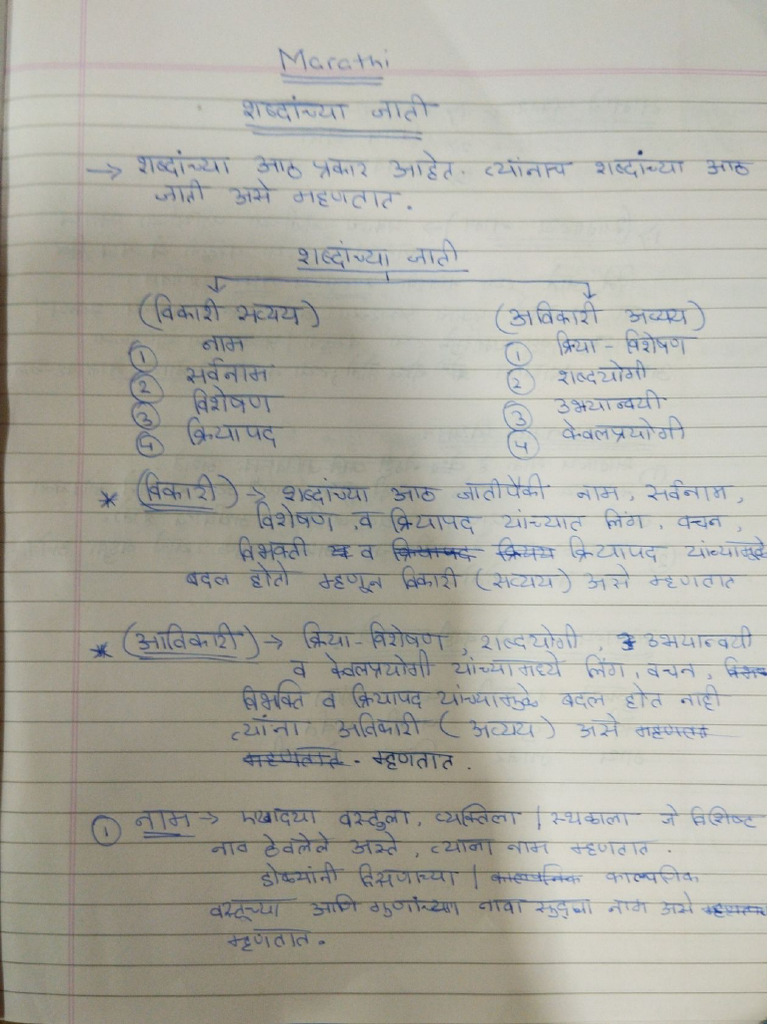 Marathi
शब्दांच्या जाती
→ शब्दांच्या आठ प्रकार आहेत. त्यांनाच शब्दांच्या आठ
जाती असे म्हणतात.
शब्दांच्या जाती
(विकारी सव्यय) (अविकारी अव्यय)
① नाम ① क्रिया - विशेषण
② सर्वनाम ② शब्दयोगी
③ विशेषण ③ उभयान्वयी
④ क्रियापद ④ केवलप्रयोगी
* (विकारी) → शब्दांच्या आठ जातीपैकी नाम, सर्वनाम,
विशेषण, व क्रियापद यांच्यात लिंग, वचन,
विभक्ती व क्रियापद यांच्यामुळे
बदल होतो म्हणून विकारी (सव्यय) असे म्हणतात
* (आविकारी) → क्रिया-विशेषण, शब्दयोगी, उभयान्वयी
व केवलप्रयोगी यांच्यामध्ये लिंग, वचन,
विभक्ति व क्रियापद यांच्यामुळे बदल होत नाही
त्यांना अविकारी (अव्यय) असे
म्हणतात.
① नाम → एखादया वस्तुला, व्यक्तिला / स्थळाला जे विशिष्ट
नाव ठेवलेले असते, त्याना नाम म्हणतात.
डोळ्यांनी दिसणाच्या / काल्पनिक
वस्तूच्या आणि गुणांच्या नावा सुद्धा नाम असे
म्हणतात.